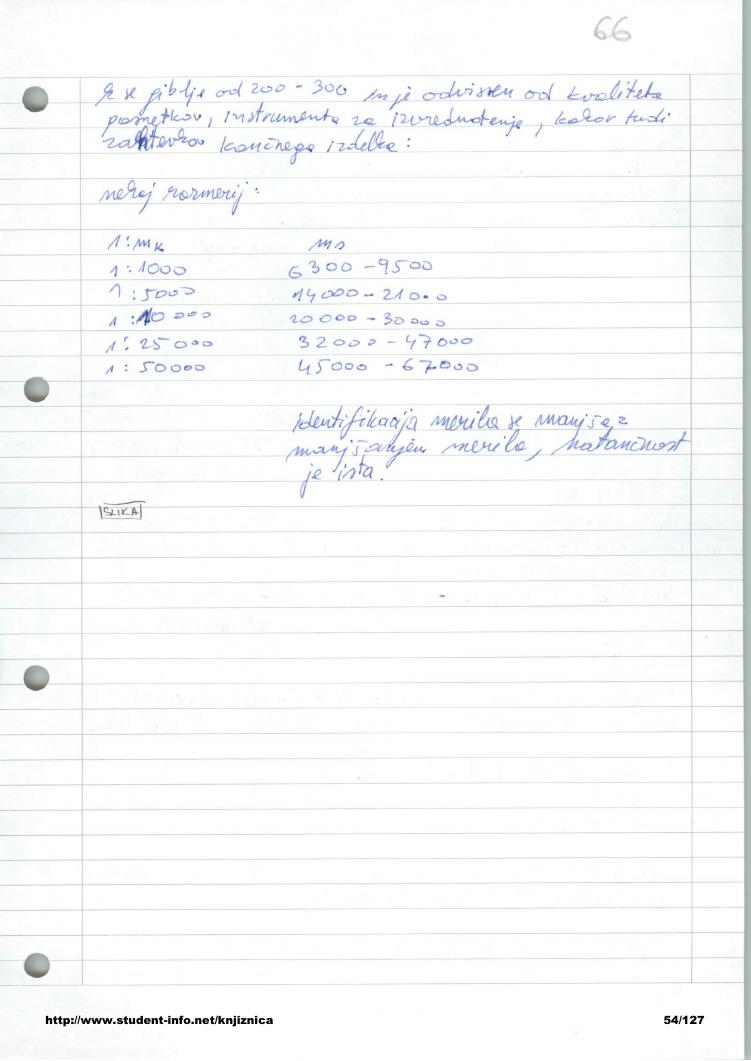 66
k se giblje od 200 - 300 in je odvisen od kvalitete
posnetkov, instrumenta za izvrednotenje, kakor tudi
zahtevkov končnega izdelka:
nekaj razmerij:
1:mk ms
1:1000 6300 - 9500
1:5000 14000 - 21000
1:10 000 20000 - 30000
1:25000 32000 - 47000
1:50000 45000 - 67000
Identifikacija merila se manjša z
manjšanjem merila, natančnost
je ista.
SLIKA
http://www.student-info.net/knjiznica 54/127